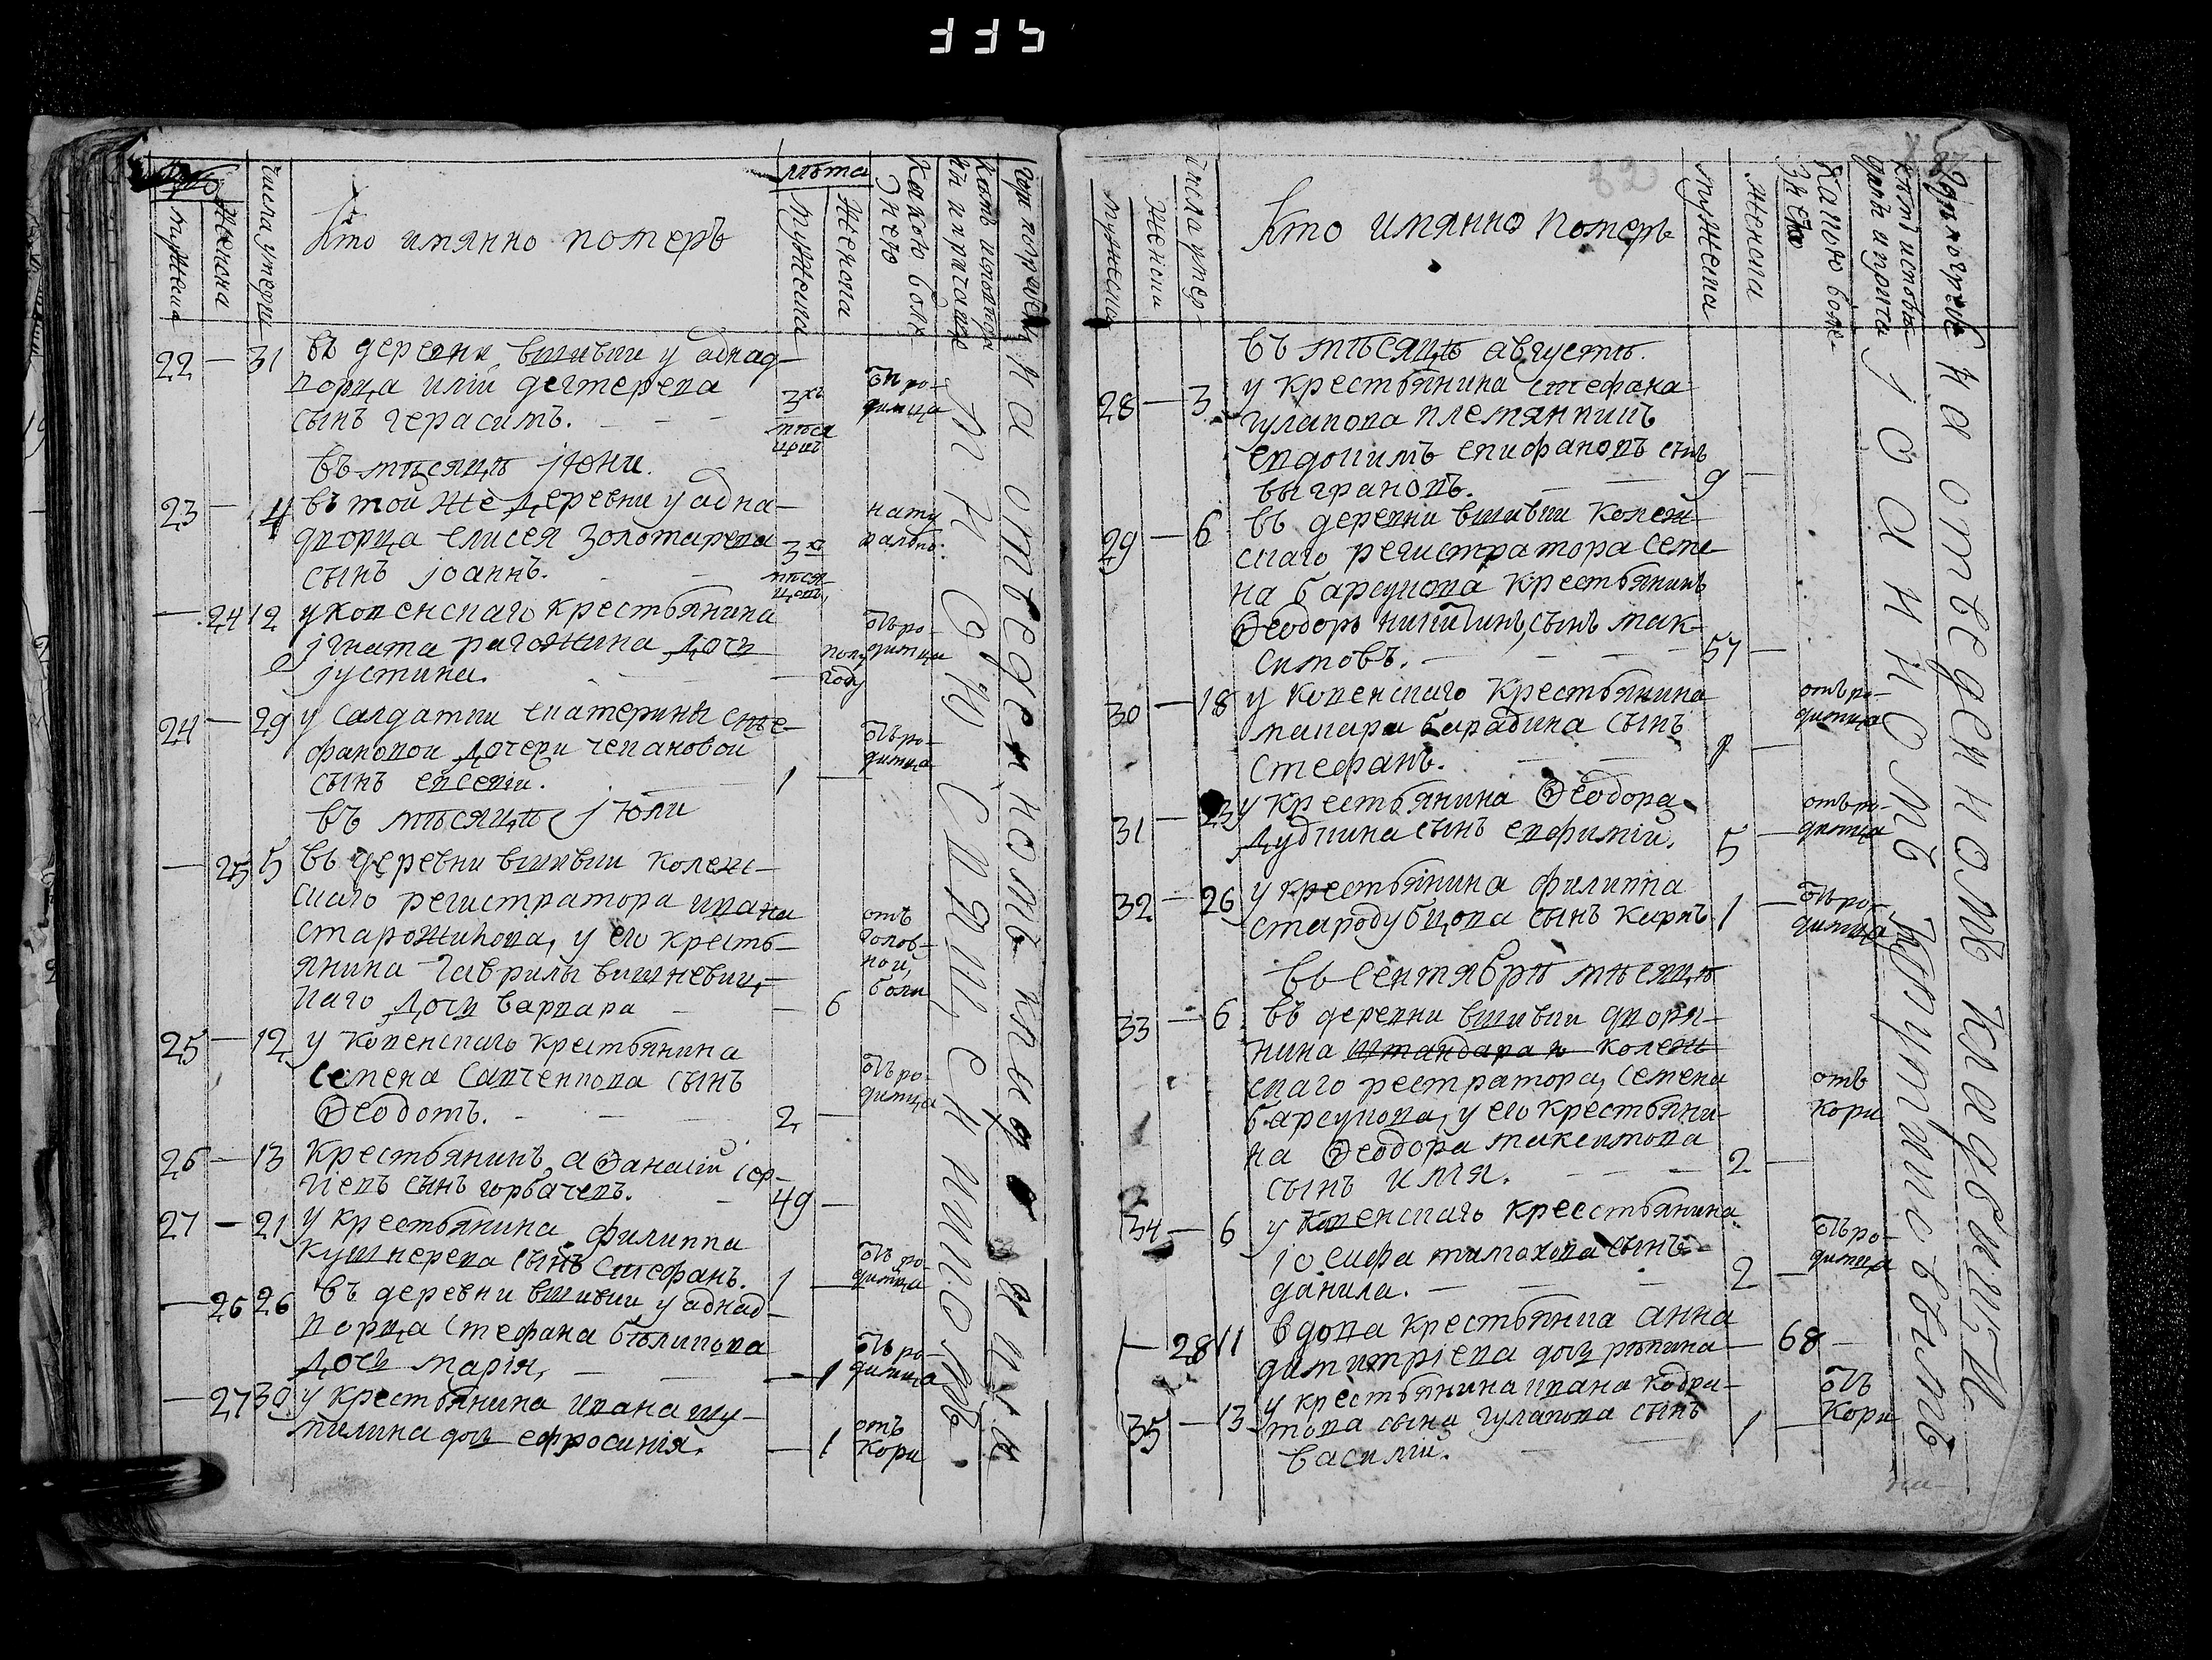 335
Числа умерш
Мужеска
Женска
Кто имянно померъ
лѣта
Мужеска
Женска
Какою болѣ
знею
Кѣмъ исповѣд
22 — 31 въ деревни вшивки у однад-
ворца иліи дегтерева
сынъ герасимъ. — 3хъ мѣся цовъ
отъ ро-
димца
въ мѣсяцѣ іюни.
23 — 4 въ той же деревни у одна-
дворца елисея золотарева
сынъ іоаннъ. 3хъ мѣся-
цовъ,
нату
рально.
— 24 12 у ковенскаго крестьянина
ігната рагожина дочь
іустина. — полу
году
отъ ро-
димца
24 — 29 у салдатки екатерины сте-
фановой дочери чепановой
сынъ евсевій. 1 —
отъ ро-
димца
въ мѣсяцѣ іюли
— 25 5 въ деревни вшивки колеж-
скаго регистратора ивана
старожикова, у его кресть-
янина гаврилы вишневец-
каго дочь варвара — — 6
отъ
голов-
ной,
боли
25 — 12 у ковенскаго крестьянина
семена савченкова сынъ
Ѳеодотъ. — — 2 —
отъ ро-
димца
26 — 13 крестьянинъ аѲанасій сер-
гіевъ сынъ горбачевъ. — 49 —
27 — 21 у крестьянина филиппа
кушнерева сынъ стефанъ. 1 —
отъ ро-
димца
— 26 26 въ деревни вшивки у однад-
ворца стефана бѣликова
дочь марія, — — 1
отъ ро-
димца
— 27 30 у крестьянина ивана шу-
милина дочь ефросинія. — 1
отъ
кори
на отведенномъ кладбищи
священникомъ
82
Мужеска
Женска
Числа умер-
Кто имянно померъ
Мужеска
Женска
Какою болѣ-
знею
въ мѣсяцѣ августѣ.
28 — 3 у крестьянина стефана
гулакова племянникъ
евдокимъ епифановъ сынъ
выграновъ. — — 9 —
29 — 6 въ деревни вшивки колеж-
скаго регистратора семе-
на барсукова крестьянинъ
Ѳеодоръ никитинъ, сынъ мак-
симовъ. — — — 57 —
30 — 18 у ковенскаго крестьянина
макара барабина сынъ
стефанъ. — —
отъ ро-
димца
31 — 23 у крестьянина Ѳеодора
дудкина сынъ евфимій. 5 —
отъ ро-
димца
32 — 26 у крестьянина филиппа
стародубцова сынъ киръ 1 —
отъ ро-
димца
въ сентябрѣ мѣсяцѣ
33 — 6 въ деревни вшивки дворя-
нина штандара и колеж
скаго рестратора, семена
барсукова, у его крестьяни-
на Ѳеодора максимова
сынъ илія. — — — 2 —
отъ
кори
34 — 6 у ковенскаго креестьянина
іосифа малахова сынъ
данила. — — — 2 —
отъ ро-
димца
— 28 11 вдова крестьянка анна
димитріева дочь рѣпина — 68 —
35 — 13 у крестьянина ивана кодра-
това сына гулакова сынъ
василій. 1 —
отъ
кори
на отведенномъ кладбищи
іоанномъ